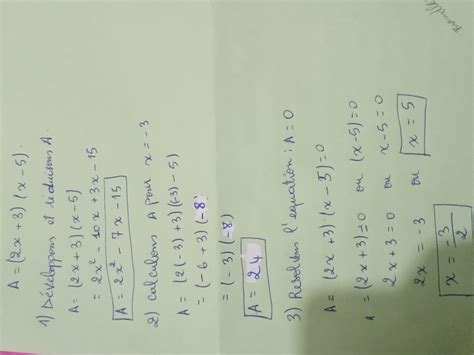 A = (2x + 3) (x - 5).
1) Développons et réduisons A.
A = (2x + 3) (x - 5)
= 2x² - 10x + 3x - 15
A = 2x² - 7x - 15
2) calculons A pour x = -3
A = (2(-3) + 3)(-3) - 5)
= (-6 + 3) (-8)
= (-3) (-8)
A = 24
3) Resoldons l'equation : A = 0
A = (2x + 3) · (x - 5) = 0
A = (2x + 3) = 0 ou (x - 5) = 0
2x + 3 = 0 ou x - 5 = 0
2x = -3 ou x = 5
x = -3/2